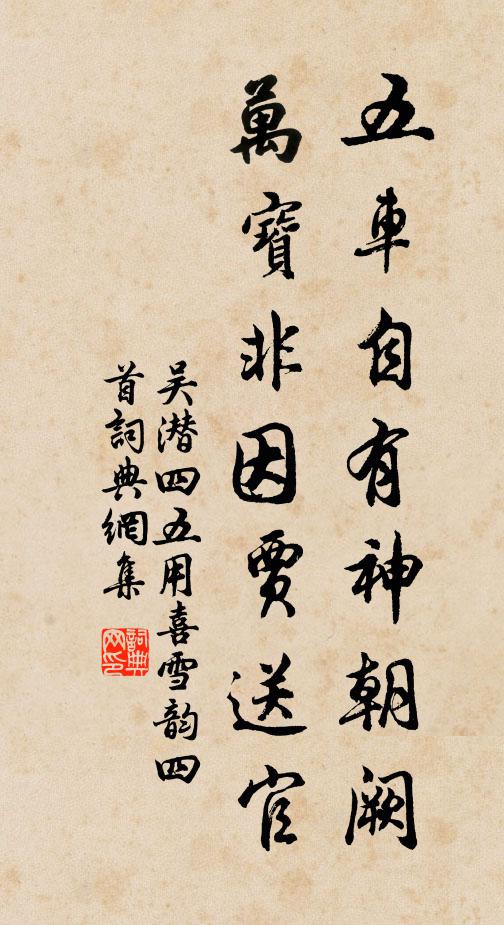 五車自有神朝闕
萬寶非因賈送官
吴潜四五用喜雪韵四
首詞典網集
詞典
网印